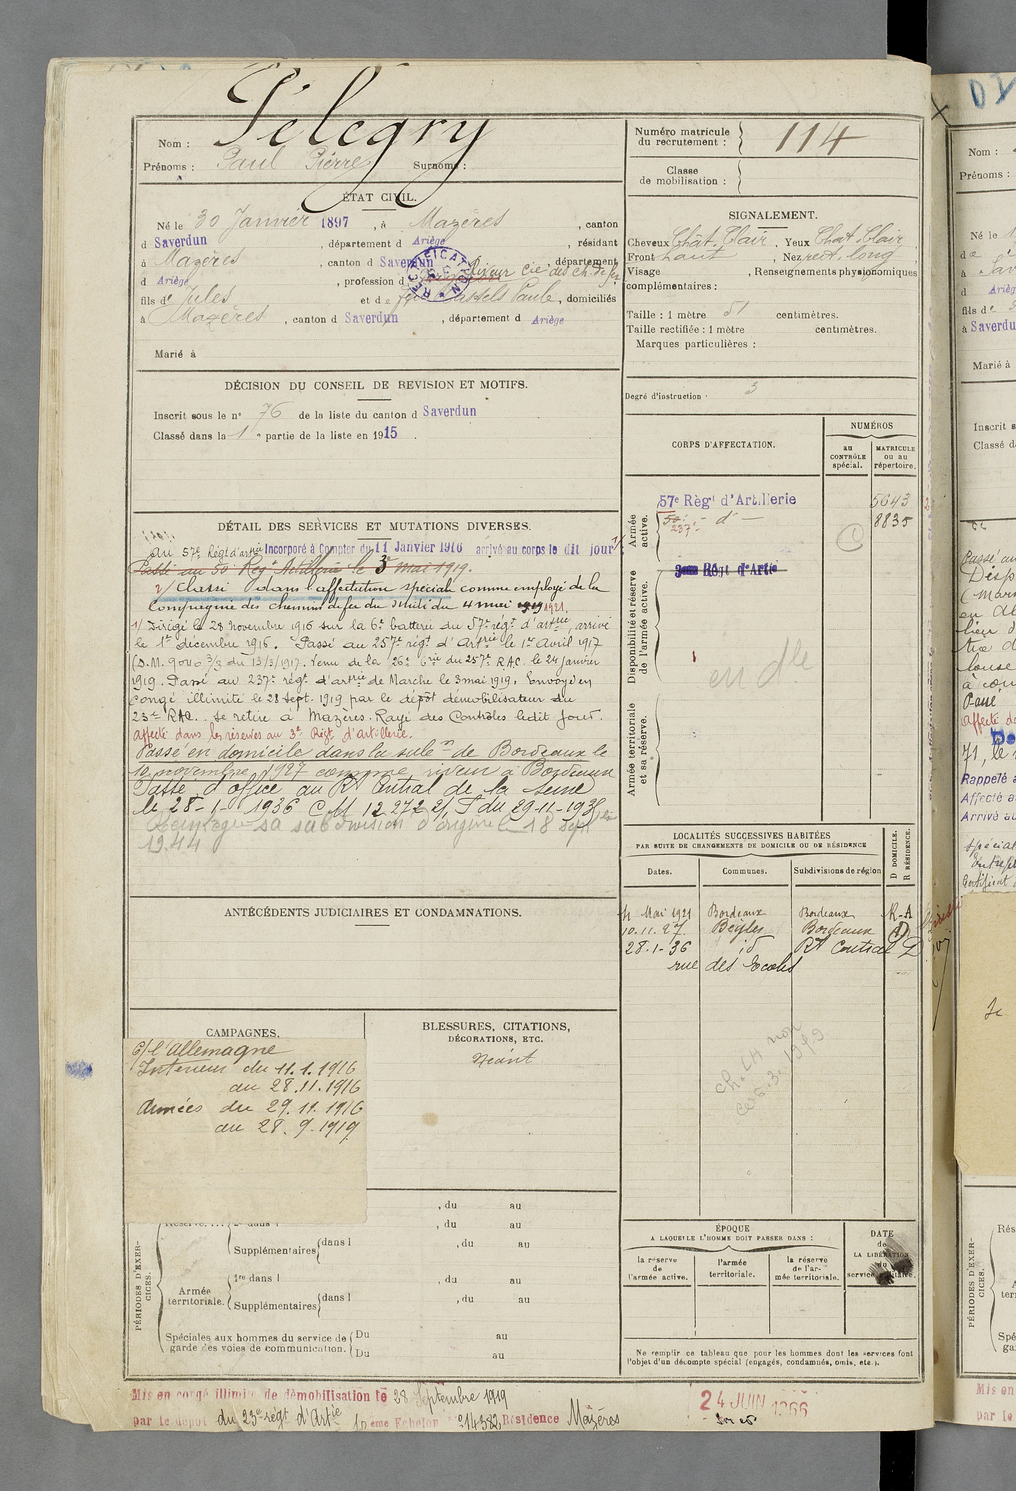 Pélegry
Nom :
Prénoms : Paul Pierre Surnoms :
ÉTAT CIVIL.
Né le 30 Janvier 1897, à Mazères, canton
d Saverdun, département d Ariège, résidant
à Mazères, canton d Saverdun, département
d Ariège, profession d Riveur Cie des ch. de fer
fils de Jules et de feue Castels Paule, domiciliés
à Mazères, canton d Saverdun, département d Ariège
Marié à
DÉCISION DU CONSEIL DE REVISION ET MOTIFS.
Inscrit sous le n° 76 de la liste du canton d Saverdun
Classé dans la 1e partie de la liste en 1915
DÉTAIL DES SERVICES ET MUTATIONS DIVERSES.
Au 57e Régt d'artrie Incorporé à Compter du 11 Janvier 1916 arrivé au corps le dit jour
Passé au 50e Regt Artillerie le 3 mai 1919.
2/ Classé dans l'affectation spéciale comme employé de la
Compagnie des chemins de fer du Midi du 4 mai 1921.
1/ Dirigé le 28 novembre 1916 sur la 6e batterie du 57e régt d'artrie arrivé
le 1er décembre 1916. Passé au 257e régt d'Artrie le 1er Avril 1917
(D.M. 9000 3/3 du 13/3/1917. Venu de la 26e Brie du 257e RAC. le 24 janvier
1919. Passé au 237e régt d'artrie de Marche le 3 mai 1919. Envoyé en
congé illimité le 28 sept. 1919 par le dépôt démobilisateur du
23e RAC. se retire à Mazères. Rayé des Contrôles ledit jour.
Affecté dans les réserves au 3e Régt d'Artillerie.
Passé en domicile dans la subon de Bordeaux le
10 novembre 1927 comme riveur à Bordeaux
Passé d'office au Rt Central de la Seine
le 28-1-1936 CM 12 272 2/S du 29-11-1935
Réintègre sa subdivision d'origine le 18 sept
1944
ANTÉCÉDENTS JUDICIAIRES ET CONDAMNATIONS.
CAMPAGNES.
c/ l'Allemagne
Intérieur du 11.1.1916
au 28.11.1916
Armées du 29.11.1916
au 28.9.1919
BLESSURES, CITATIONS,
DÉCORATIONS, ETC.
Néant
PÉRIODES D'EXERCICES.
, du au
, du au
Supplémentaires dans l , du au
Armée territoriale. 1re dans l , du au
Supplémentaires dans l , du au
Spéciales aux hommes du service de Du au
garde des voies de communication. Du au
Mis en congé illimité de démobilisation le 28 Septembre 1919
par le dépôt du 23e régt d'Artie Echelon 214382 Résidence Mazères
Numéro matricule
du recrutement : 114
Classe
de mobilisation :
SIGNALEMENT.
Cheveux Chât. Clair, Yeux Chât. Clair
Front haut, Nez rect. long
Visage , Renseignements physionomiques
complémentaires :
Taille : 1 mètre 51 centimètres.
Taille rectifiée : 1 mètre centimètres.
Marques particulières :
Degré d'instruction : 3
CORPS D'AFFECTATION.
NUMÉROS
AU CONTRÔLE spécial.
MATRICULE ou au répertoire.
Armée active.
57e Régt d'Artillerie 5643
50e - d° - 8835
237e
C
Disponibilité et réserve de l'armée active.
3me Régt d'Artie
en dle
Armée territoriale et sa réserve.
LOCALITÉS SUCCESSIVES HABITÉES
PAR SUITE DE CHANGEMENTS DE DOMICILE OU DE RÉSIDENCE
D DOMICILE.
R RÉSIDENCE.
Dates. Communes. Subdivisions de région
4 Mai 1921 Bordeaux Bordeaux R-A
10.11.27 Bègles Bordeaux D
28-1-36 id Rt Central D
rue des Ecoles
ÉPOQUE
A LAQUELLE L'HOMME DOIT PASSER DANS :
la réserve de l'armée active.
l'armée territoriale.
la réserve de l'armée territoriale.
DATE de LA LIBÉRATION du service militaire.
Ne remplir ce tableau que pour les hommes dont les services font
l'objet d'un décompte spécial (engagés, condamnés, omis, etc.).
24 JUIN 1966